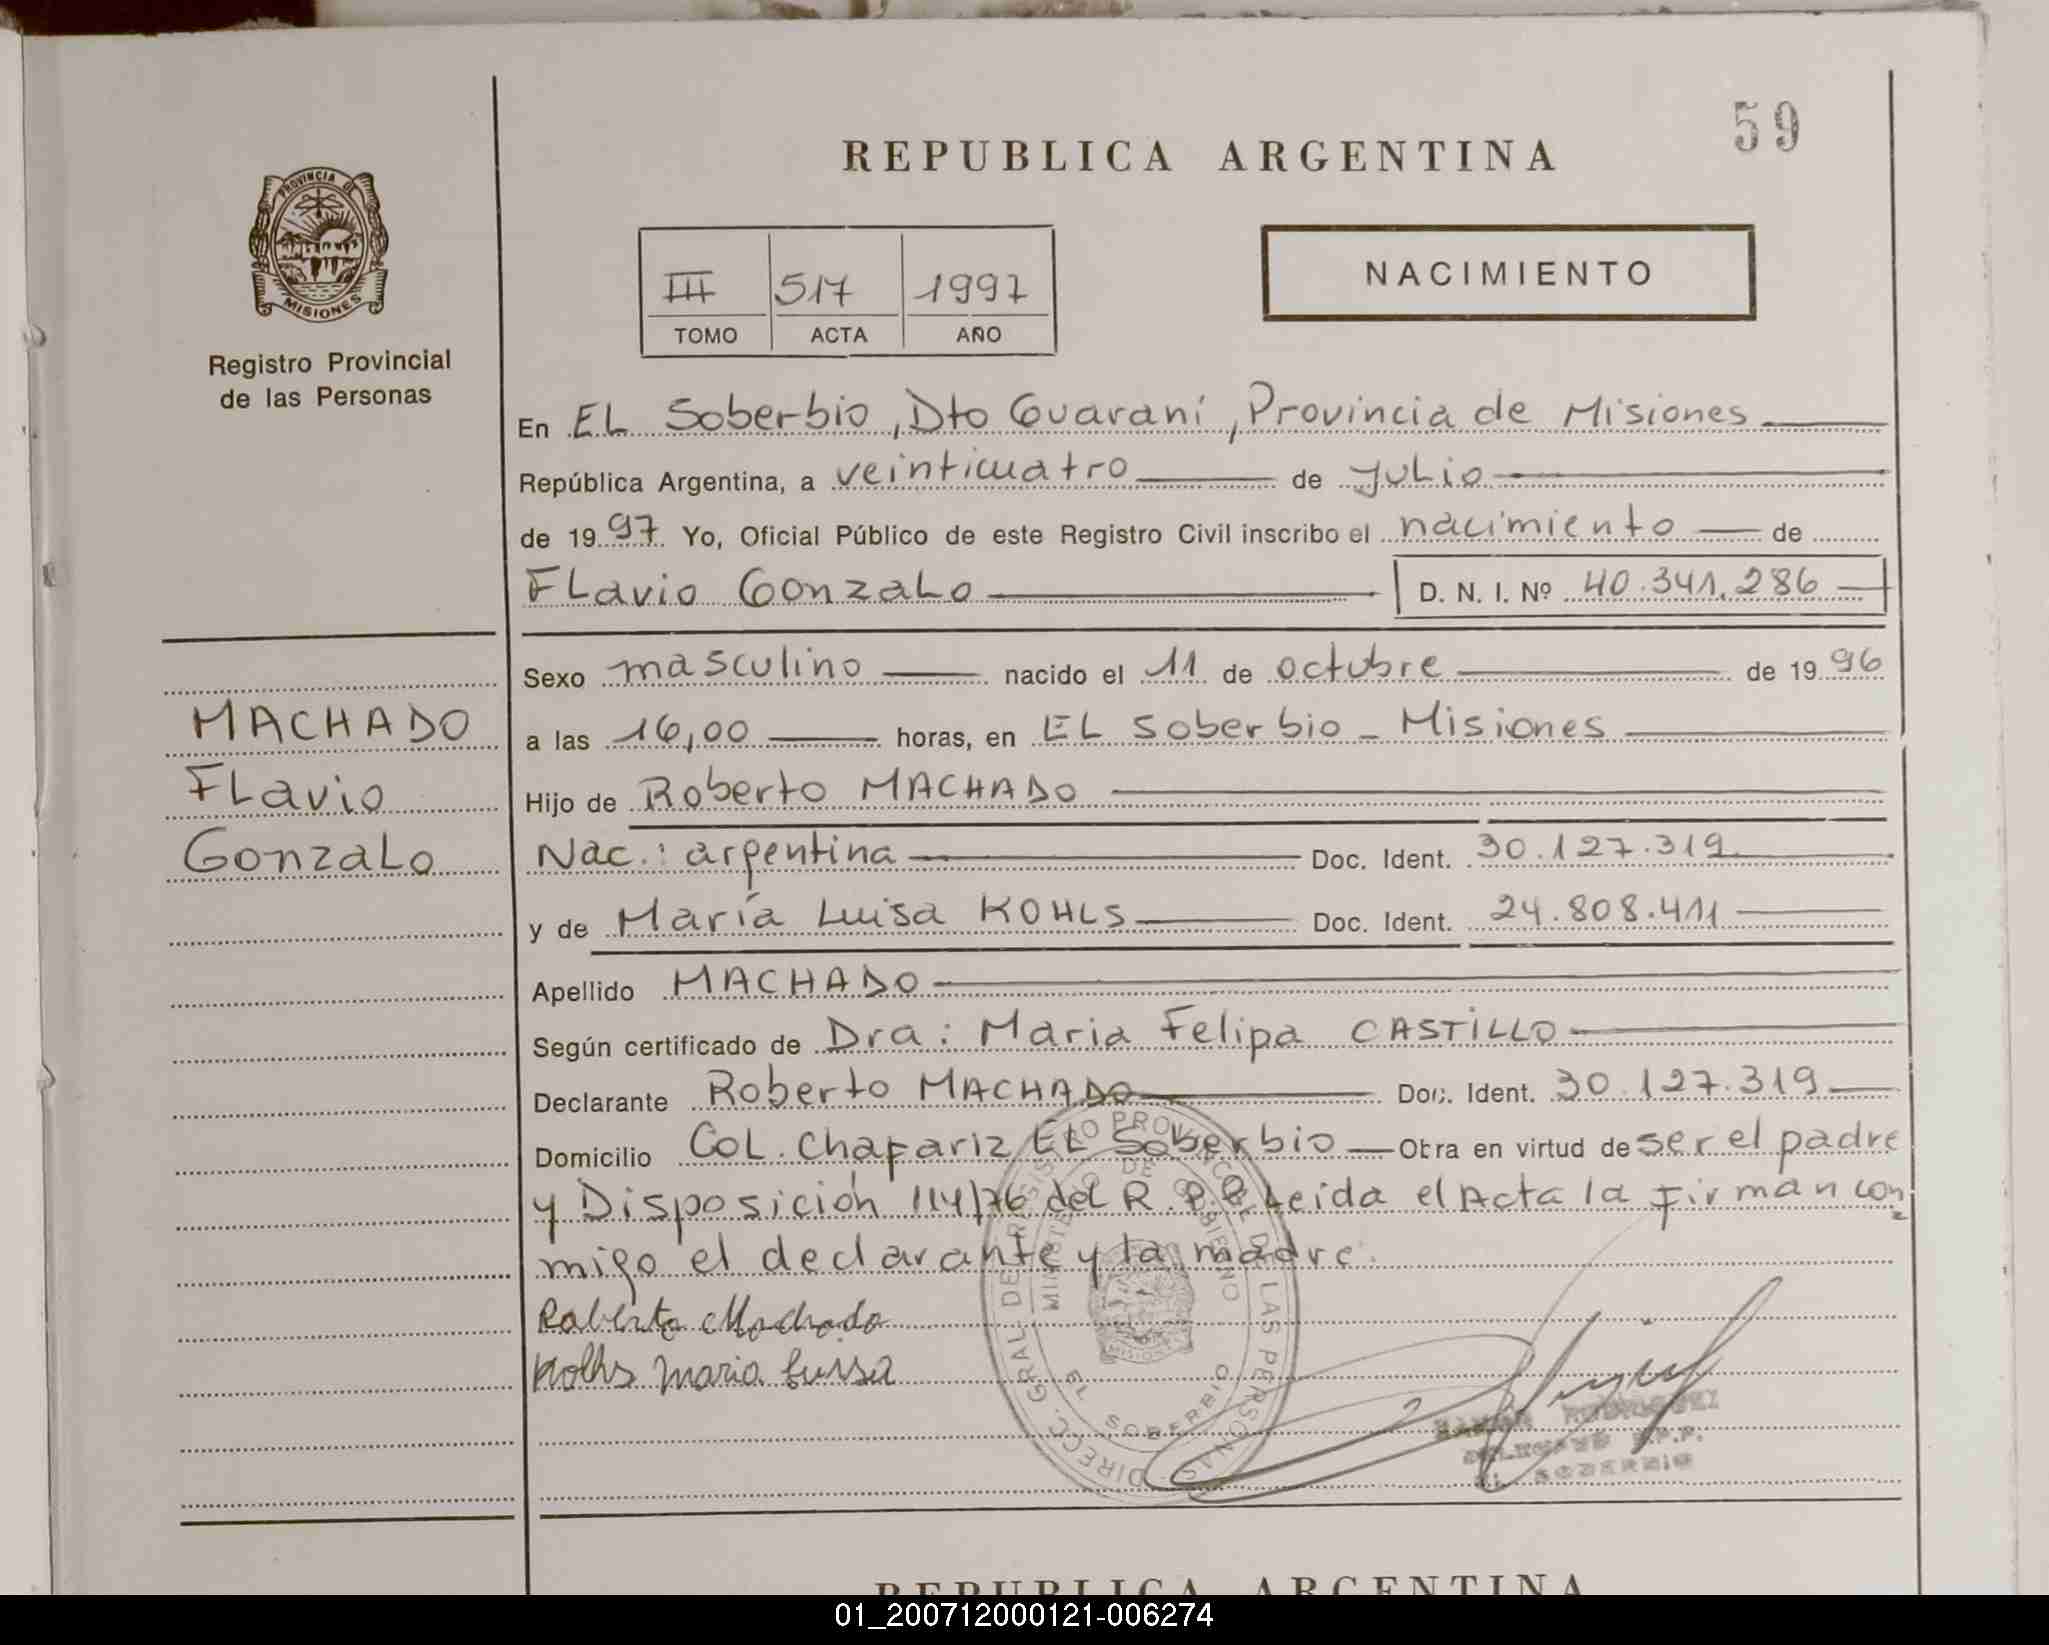 59
REPUBLICA ARGENTINA
PROVINCIA DE
MISIONES
Registro Provincial
de las Personas
III 517 1997
TOMO ACTA AÑO
NACIMIENTO
En EL Soberbio, Dto Guaraní, Provincia de Misiones
República Argentina, a veinticuatro de Julio
de 1997 Yo, Oficial Público de este Registro Civil inscribo el nacimiento de
Flavio Gonzalo D. N. I. Nº 40.341.286
MACHADO
Flavio
Gonzalo
Sexo masculino nacido el 11 de octubre de 1996
a las 16,00 horas, en EL Soberbio - Misiones
Hijo de Roberto MACHADO
Nac.: argentina Doc. Ident. 30.127.319
y de María Luisa KOHLS Doc. Ident. 24.808.411
Apellido MACHADO
Según certificado de Dra: Maria Felipa CASTILLO
Declarante Roberto MACHADO Doc. Ident. 30.127.319
Domicilio Col. Chafariz EL Soberbio Obra en virtud de ser el padre
y Disposición 114/76 del R.P.P. Leida el Acta la firman con
migo el declarante y la madre.
Roberto Machado
Kolhs Maria Luisa
DIRECC. GRAL. DE REGISTRO PROVINCIAL DE LAS PERSONAS
MINISTERIO DE GOBIERNO
MISIONES
EL SOBERBIO
RAMON RODRIGUEZ
DELEGADO R.P.P.
EL SOBERBIO
REPUBLICA ARGENTINA
01_200712000121-006274